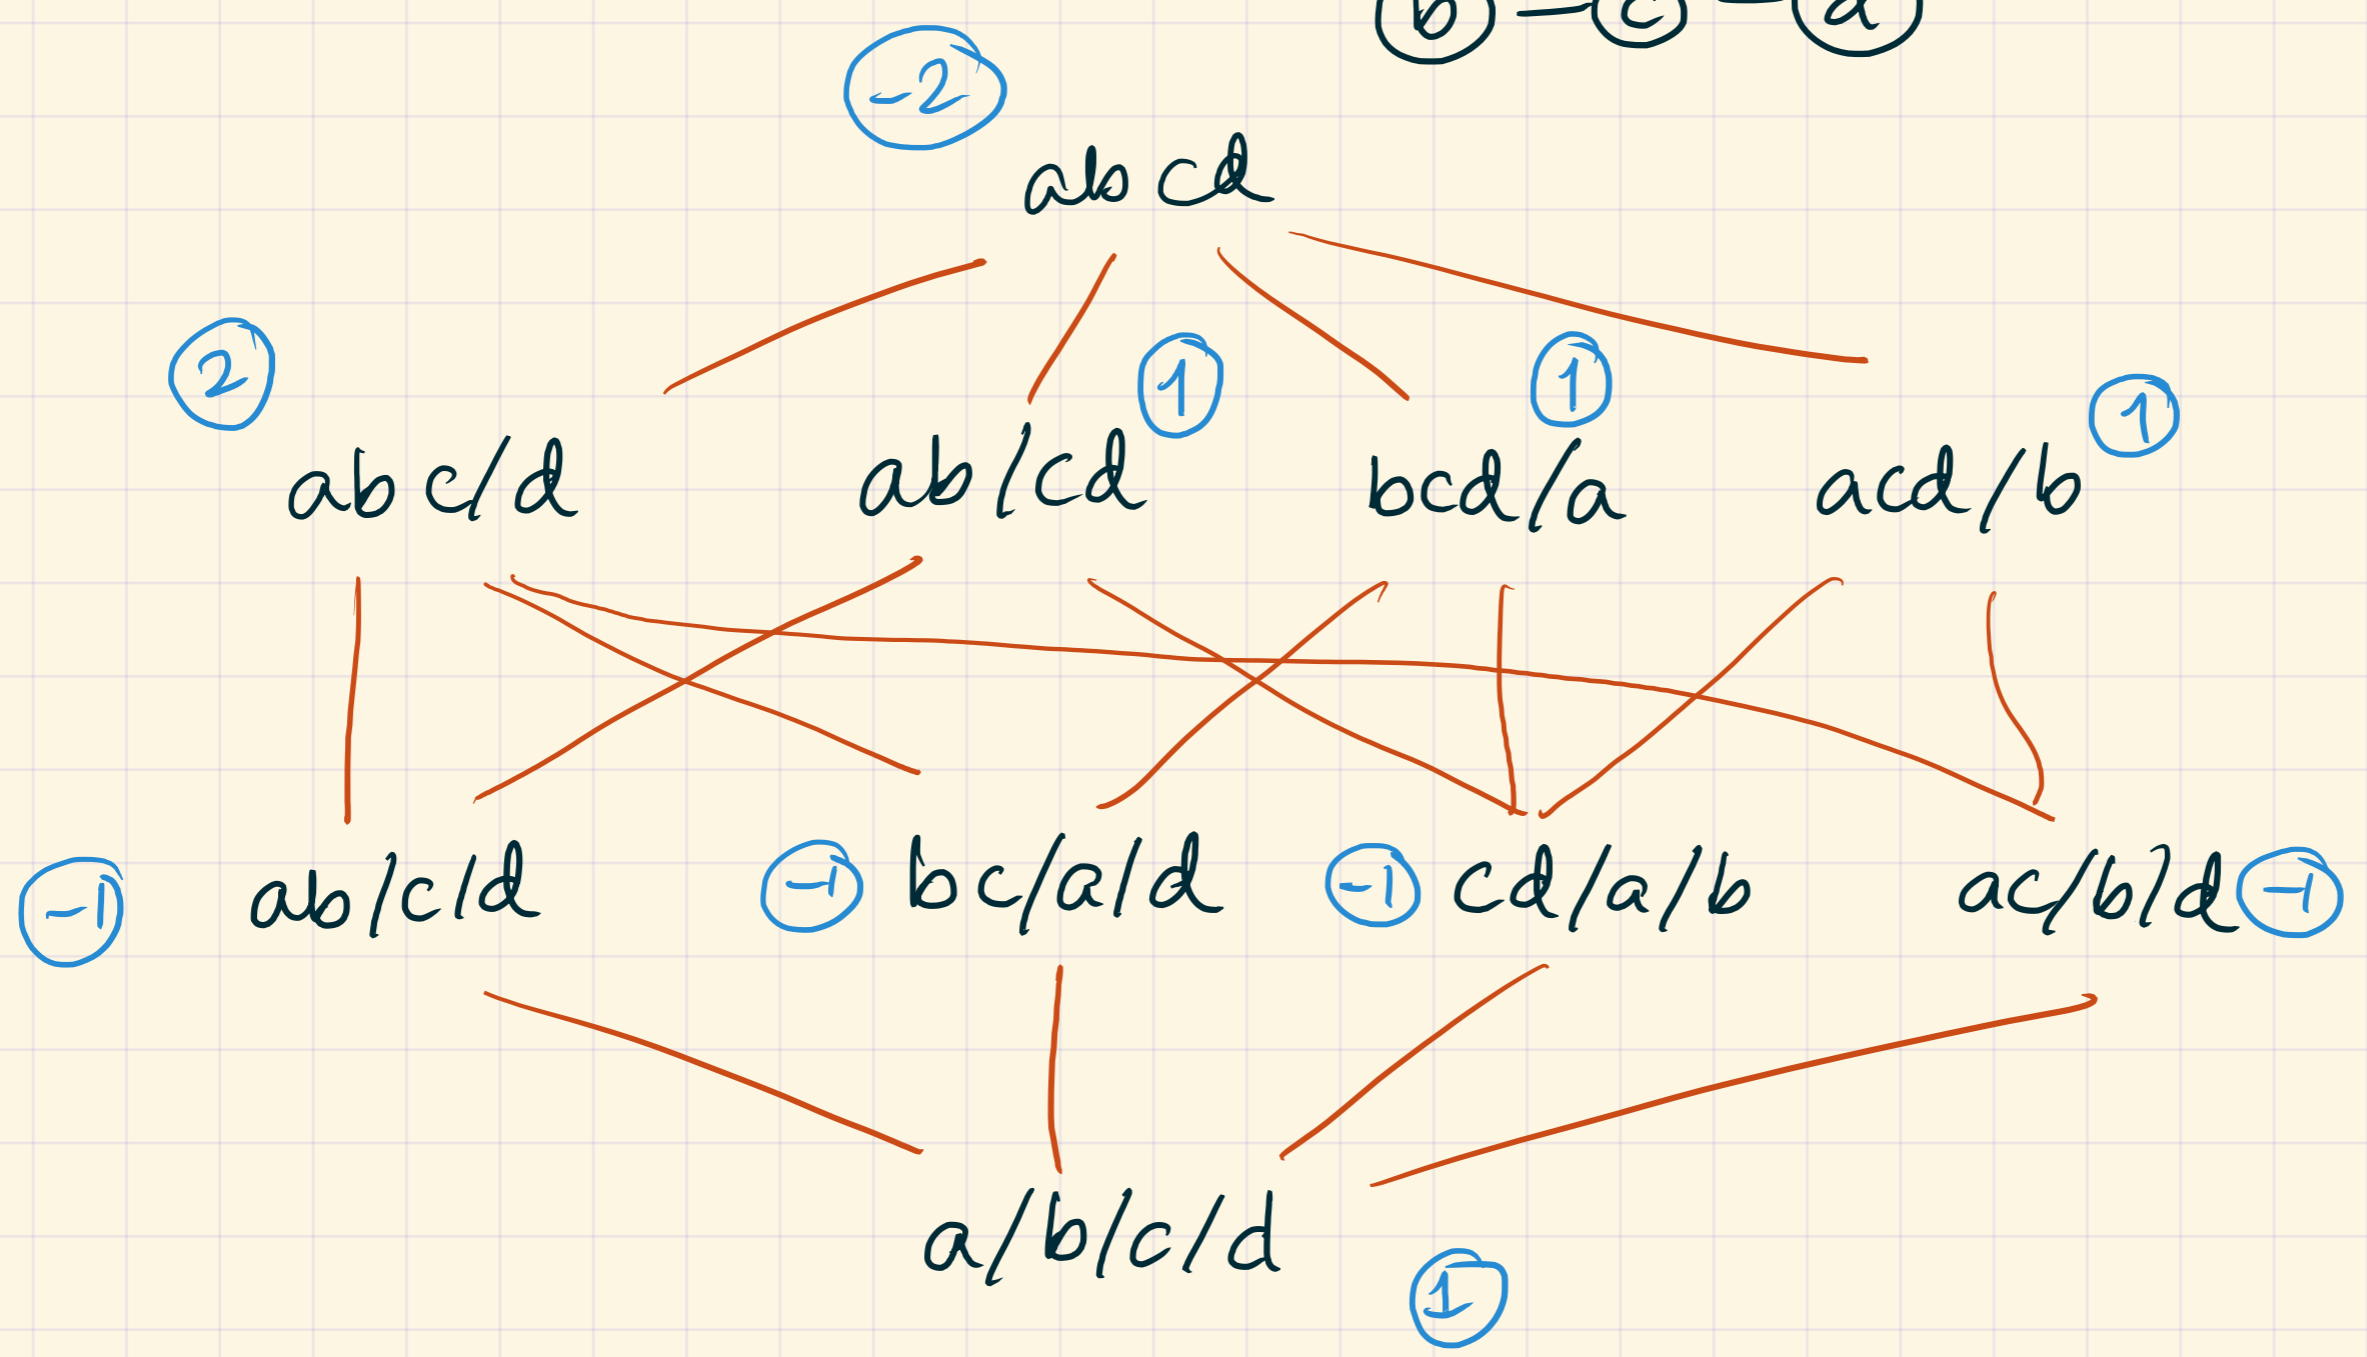 b c d
-2
abcd
2 1 1 1
abc/d ab/cd bcd/a acd/b
-1 ab/c/d -1 bc/a/d -1 cd/a/b ac/b/d -1
a/b/c/d
1